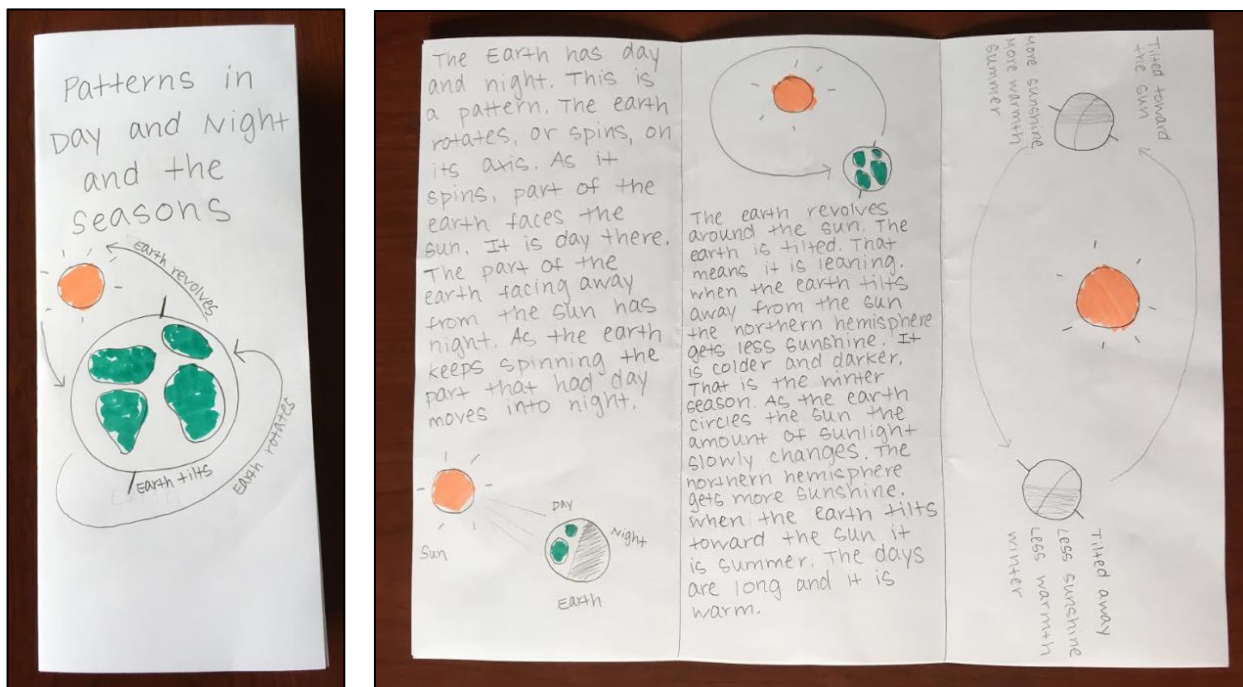 Patterns in
Day and Night
and the
seasons
Earth revolves
Earth rotates
Earth tilts
The Earth has day
and night. This is
a pattern. The earth
rotates, or spins, on
its axis. As it
spins, part of the
earth faces the
sun. It is day there.
The part of the
earth facing away
from the sun has
night. As the earth
keeps spinning the
part that had day
moves into night.
Sun
Day
Night
Earth
The earth revolves
around the sun. The
earth is tilted. That
means it is leaning.
when the earth tilts
away from the sun
the northern hemisphere
gets less sunshine. It
is colder and darker.
That is the winter
season. As the earth
circles the sun the
amount of sunlight
slowly changes. The
northern hemisphere
gets more sunshine.
when the earth tilts
toward the sun it
is summer. The days
are long and it is
warm.
Tilted toward
the sun
More sunshine
More warmth
summer
Tilted away
Less sunshine
Less warmth
winter